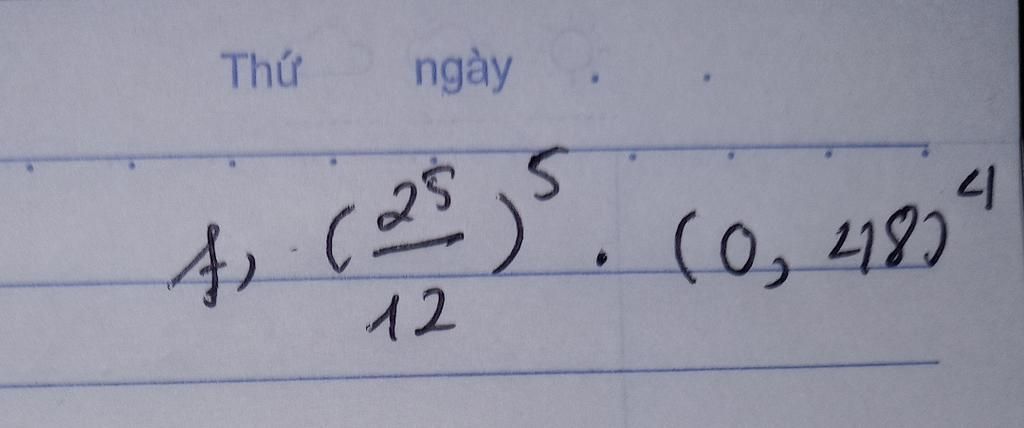 Thứ ngày . .
f, (25/12)^5 . (0,48)^4